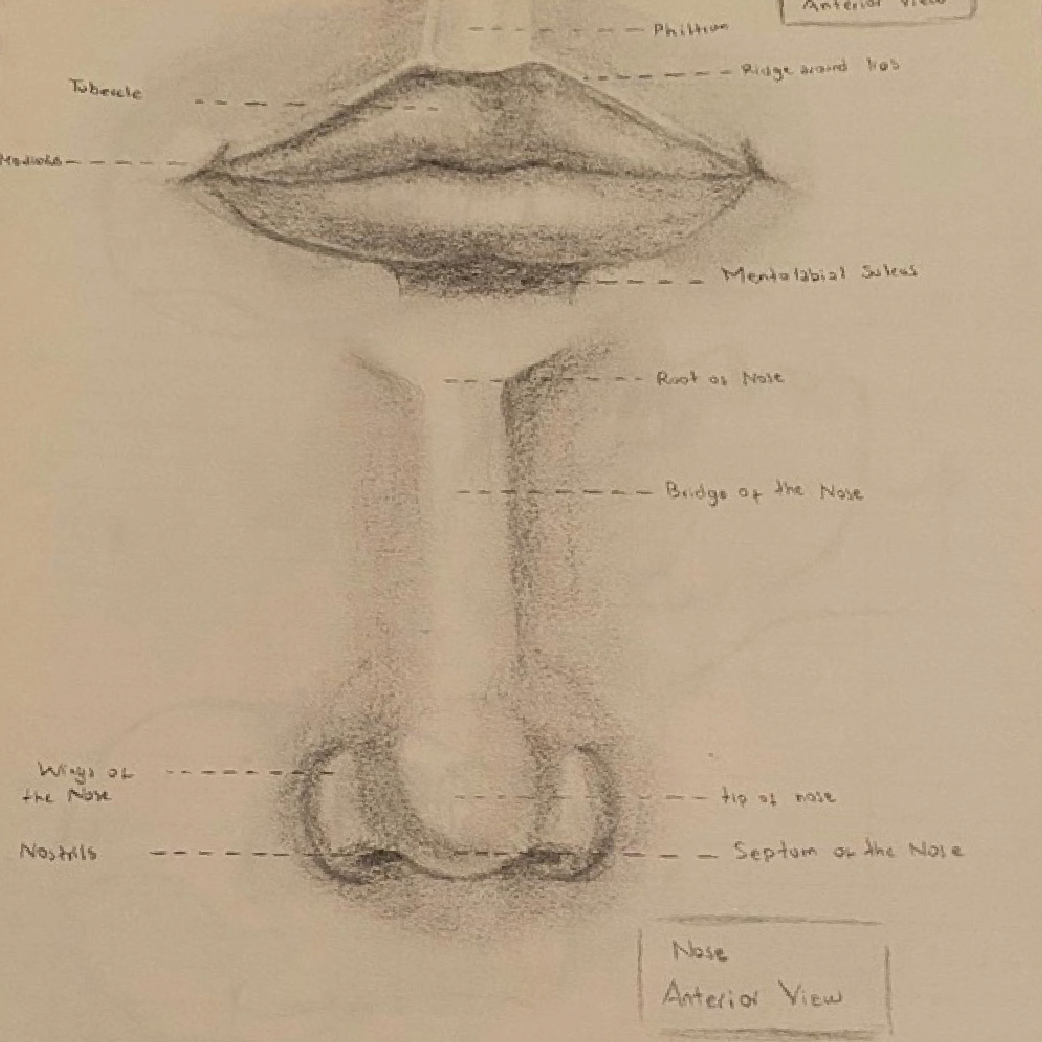 Anterior View
Philtrum
Ridge around lips
Tubercle
Modiolus
Mentolabial Sulcus
Root of Nose
Bridge of the Nose
Wings of
the Nose
tip of nose
Nostrils
Septum of the Nose
Nose
Anterior View